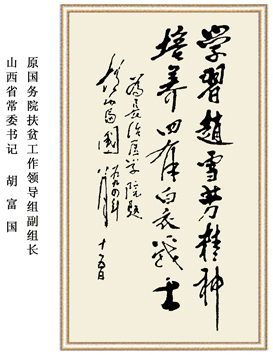 学習趙雪芳精神
培养四有白衣战士
為長治医学院题
胡富國
一九九四年八月十五日
原国务院扶贫工作领导组副组长
山西省常委书记 胡富国